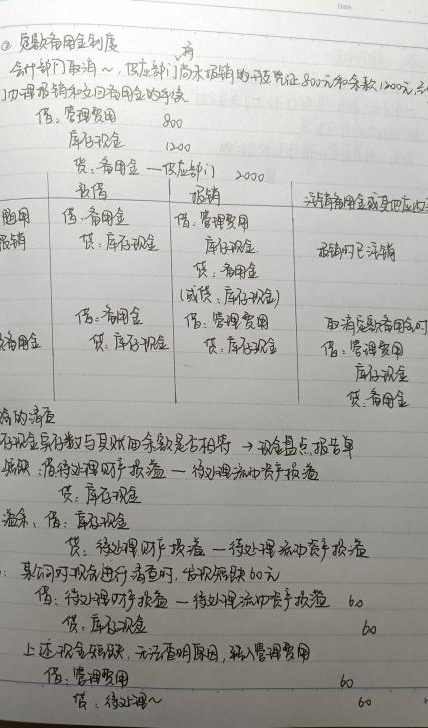 Date
② 定额备用金制度
会计部门取消~,供应部门尚未报销的开支凭证800元和余款1200元,
门办理报销和交回备用金的手续
借:管理费用 800
库存现金 1200
贷:备用金—供应部门 2000
报销
借:备用金 借:管理费用
报销 贷:库存现金 库存现金 报销时已注销
贷:备用金
(或贷:库存现金)
借:备用金 借:管理费用 取消定额备用金时
备用金 贷:库存现金 贷:库存现金 借:管理费用
库存现金
贷:备用金
的清查
存现金实存数与其账面余额是否相符 → 现金盘点报告单
短缺:借:待处理财产损溢—待处理流动资产损溢
贷:库存现金
溢余:借:库存现金
贷:待处理财产损溢—待处理流动资产损溢
:某公司对现金进行清查时,发现短缺60元
借:待处理财产损溢—待处理流动资产损溢 60
贷:库存现金 60
上述现金短缺,无法查明原因,转入管理费用
借:管理费用 60
贷:待处理~ 60